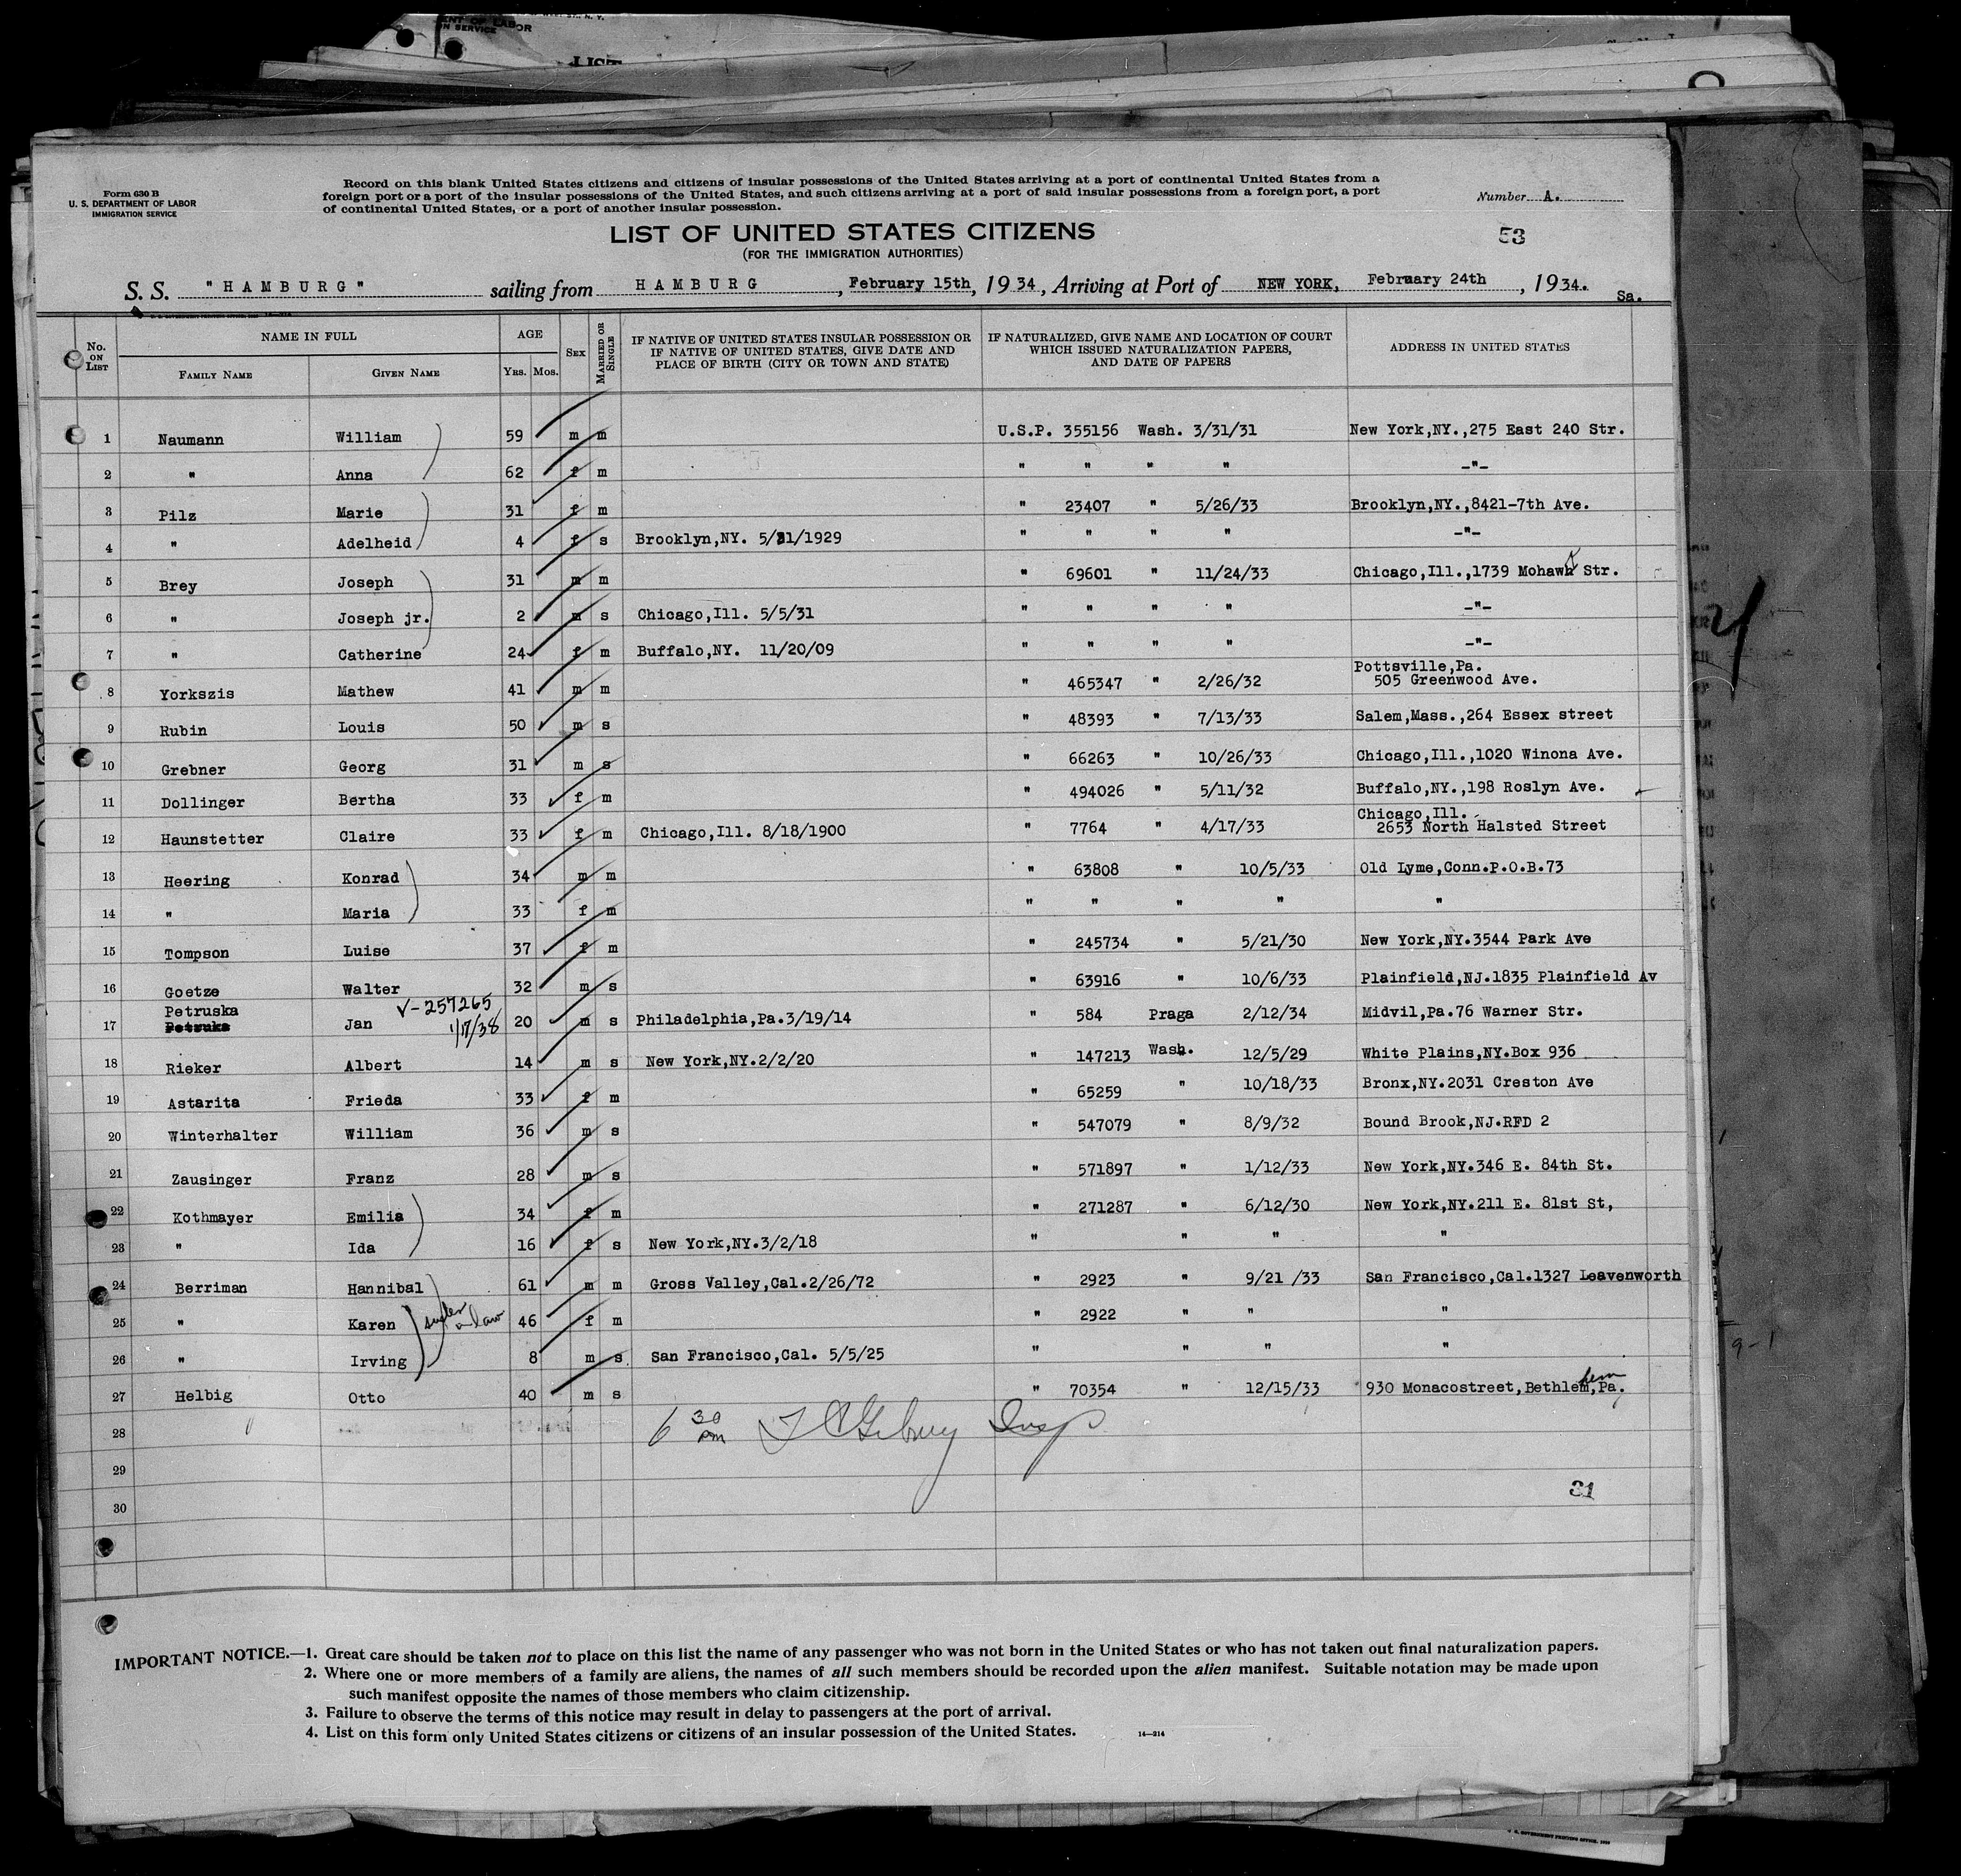 LIST
Form 630 B
U. S. DEPARTMENT OF LABOR
IMMIGRATION SERVICE
Record on this blank United States citizens and citizens of insular possessions of the United States arriving at a port of continental United States from a
foreign port or a port of the insular possessions of the United States, and such citizens arriving at a port of said insular possessions from a foreign port, a port
of continental United States, or a port of another insular possession.
Number A.
LIST OF UNITED STATES CITIZENS
(FOR THE IMMIGRATION AUTHORITIES)
53
S. S. "HAMBURG" sailing from HAMBURG, February 15th, 1934, Arriving at Port of NEW YORK, February 24th, 1934.
Sa.
No. ON LIST NAME IN FULL FAMILY NAME GIVEN NAME AGE YRS. MOS. SEX MARRIED OR SINGLE IF NATIVE OF UNITED STATES INSULAR POSSESSION OR IF NATIVE OF UNITED STATES, GIVE DATE AND PLACE OF BIRTH (CITY OR TOWN AND STATE) IF NATURALIZED, GIVE NAME AND LOCATION OF COURT WHICH ISSUED NATURALIZATION PAPERS, AND DATE OF PAPERS ADDRESS IN UNITED STATES
1 Naumann William 59 m m U.S.P. 355156 Wash. 3/31/31 New York,NY.,275 East 240 Str.
2 " Anna 62 f m " " " " -"-
3 Pilz Marie 31 f m " 23407 " 5/26/33 Brooklyn,NY.,8421-7th Ave.
4 " Adelheid 4 f s Brooklyn,NY. 5/31/1929 " " " " -"-
5 Brey Joseph 31 m m " 69601 " 11/24/33 Chicago,Ill.,1739 Mohawk Str.
6 " Joseph jr. 2 m s Chicago,Ill. 5/5/31 " " " " -"-
7 " Catherine 24 f m Buffalo,NY. 11/20/09 " " " " -"-
8 Yorkszis Mathew 41 m m " 465347 " 2/26/32 Pottsville,Pa. 505 Greenwood Ave.
9 Rubin Louis 50 m s " 48393 " 7/13/33 Salem,Mass.,264 Essex street
10 Grebner Georg 31 m s " 66263 " 10/26/33 Chicago,Ill.,1020 Winona Ave.
11 Dollinger Bertha 33 f m " 494026 " 5/11/32 Buffalo,NY.,198 Roslyn Ave.
12 Haunstetter Claire 33 f m Chicago,Ill. 8/18/1900 " 7764 " 4/17/33 Chicago,Ill. 2653 North Halsted Street
13 Heering Konrad 34 m m " 63808 " 10/5/33 Old Lyme,Conn.P.O.B.73
14 " Maria 33 f m " " " " "
15 Tompson Luise 37 f m " 245734 " 5/21/30 New York,NY.3544 Park Ave
16 Goetze Walter 32 m s " 63916 " 10/6/33 Plainfield,NJ.1835 Plainfield Av
Petruska V-257265
17 Petruka Jan 1/17/38 20 m s Philadelphia,Pa.3/19/14 " 584 Praga 2/12/34 Midvil,Pa.76 Warner Str.
18 Rieker Albert 14 m s New York,NY.2/2/20 " 147213 Wash. 12/5/29 White Plains,NY.Box 936
19 Astarita Frieda 33 f m " 65259 " 10/18/33 Bronx,NY.2031 Creston Ave
20 Winterhalter William 36 m s " 547079 " 8/9/32 Bound Brook,NJ.RFD 2
21 Zausinger Franz 28 m s " 571897 " 1/12/33 New York,NY.346 E. 84th St.
22 Kothmayer Emilia 34 f m " 271287 " 6/12/30 New York,NY.211 E. 81st St,
23 " Ida 16 f s New York,NY.3/2/18 " " " "
24 Berriman Hannibal 61 m m Gross Valley,Cal.2/26/72 " 2923 " 9/21 /33 San Francisco,Cal.1327 Leavenworth
25 " Karen 46 f m " 2922 " " "
26 " Irving 8 m s San Francisco,Cal. 5/5/25 " " " "
27 Helbig Otto 40 m s " 70354 " 12/15/33 930 Monacostreet,Bethlem,Pa.
hem
28 6 30 pm Insp
29
31
30
IMPORTANT NOTICE.—1. Great care should be taken not to place on this list the name of any passenger who was not born in the United States or who has not taken out final naturalization papers.
2. Where one or more members of a family are aliens, the names of all such members should be recorded upon the alien manifest. Suitable notation may be made upon
such manifest opposite the names of those members who claim citizenship.
3. Failure to observe the terms of this notice may result in delay to passengers at the port of arrival.
4. List on this form only United States citizens or citizens of an insular possession of the United States. 14—214
9-1